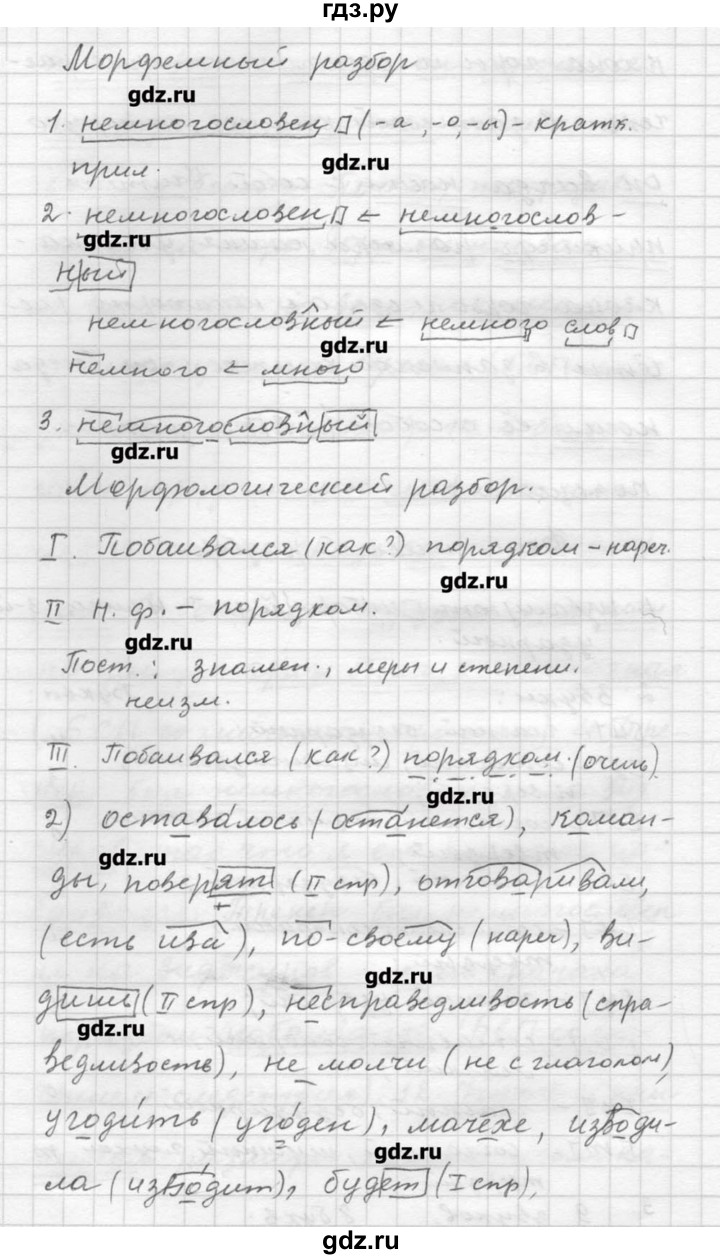 гдз.ру
Морфемный разбор
gdz.ru
1. немногословен (-а, -о, -ы) - кратк.
gdz.ru
прил.
2. немногословен ← немногослов-
gdz.ru
ный
немногословный ← немного слов
gdz.ru
немного ← много
3. немногословный
gdz.ru
Морфологический разбор.
I. Побаивался (как?) порядком - нареч.
gdz.ru
II н. ф. - порядком.
gdz.ru
Пост.: знамен., меры и степени.
неизм.
III. Побаивался (как?) порядком. (очень).
gdz.ru
2) оставалось (останется), коман-
gdz.ru
ды, поверят (II спр), отговаривали,
(есть ива), по-своему (нареч), ви-
gdz.ru
дишь (II спр), несправедливость (спра-
gdz.ru
ведливость), не молчи (не с глаголом),
угодить (угоден), мачехе, изводи-
gdz.ru
ла (изводит), будет (I спр),
gdz.ru